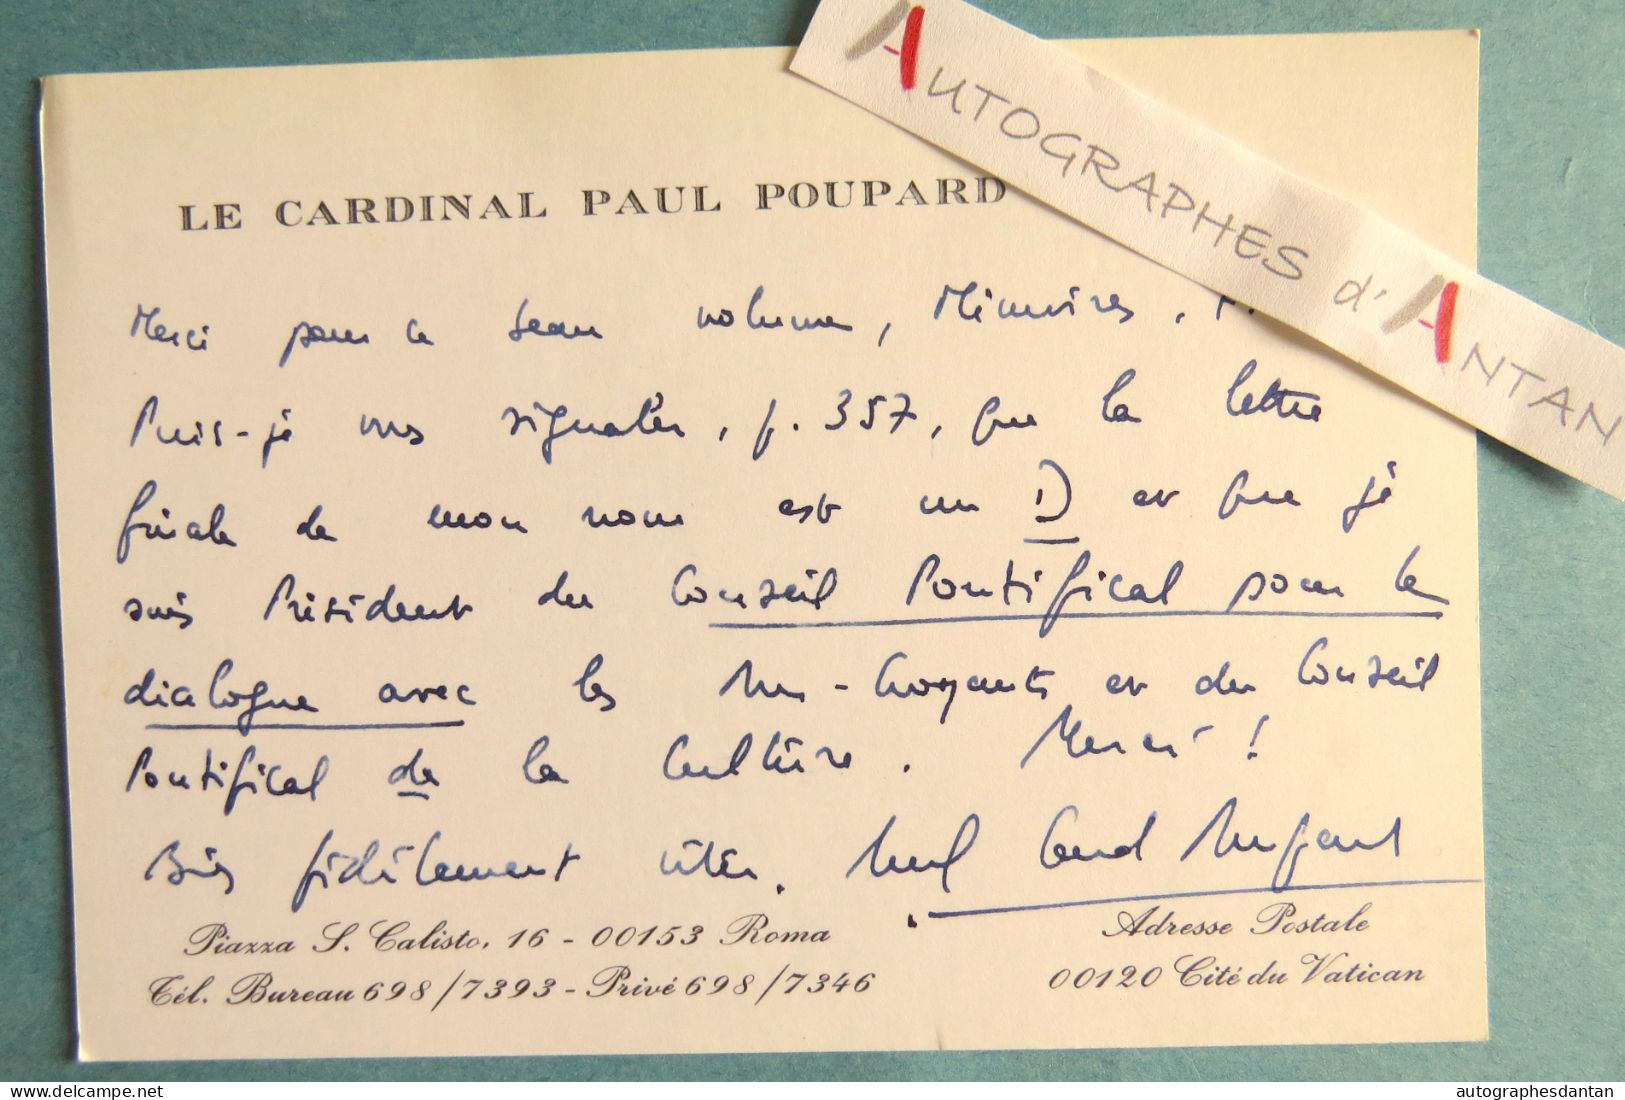 AUTOGRAPHES d'ANTAN
LE CARDINAL PAUL POUPARD
Merci pour ce beau volume, Mémoires.
Puis-je vous signaler, p. 357, que la lettre
finale de mon nom est un D et que je
suis Président du Conseil Pontifical pour le
dialogue avec les Non-Croyants et du Conseil
Pontifical de la Culture. Merci !
Bien fidèlement vôtre. Paul Card Poupard
Piazza S. Calisto, 16 - 00153 Roma
Tél. Bureau 698/7393 - Privé 698/7346
Adresse Postale
00120 Cité du Vatican
autographesdantan